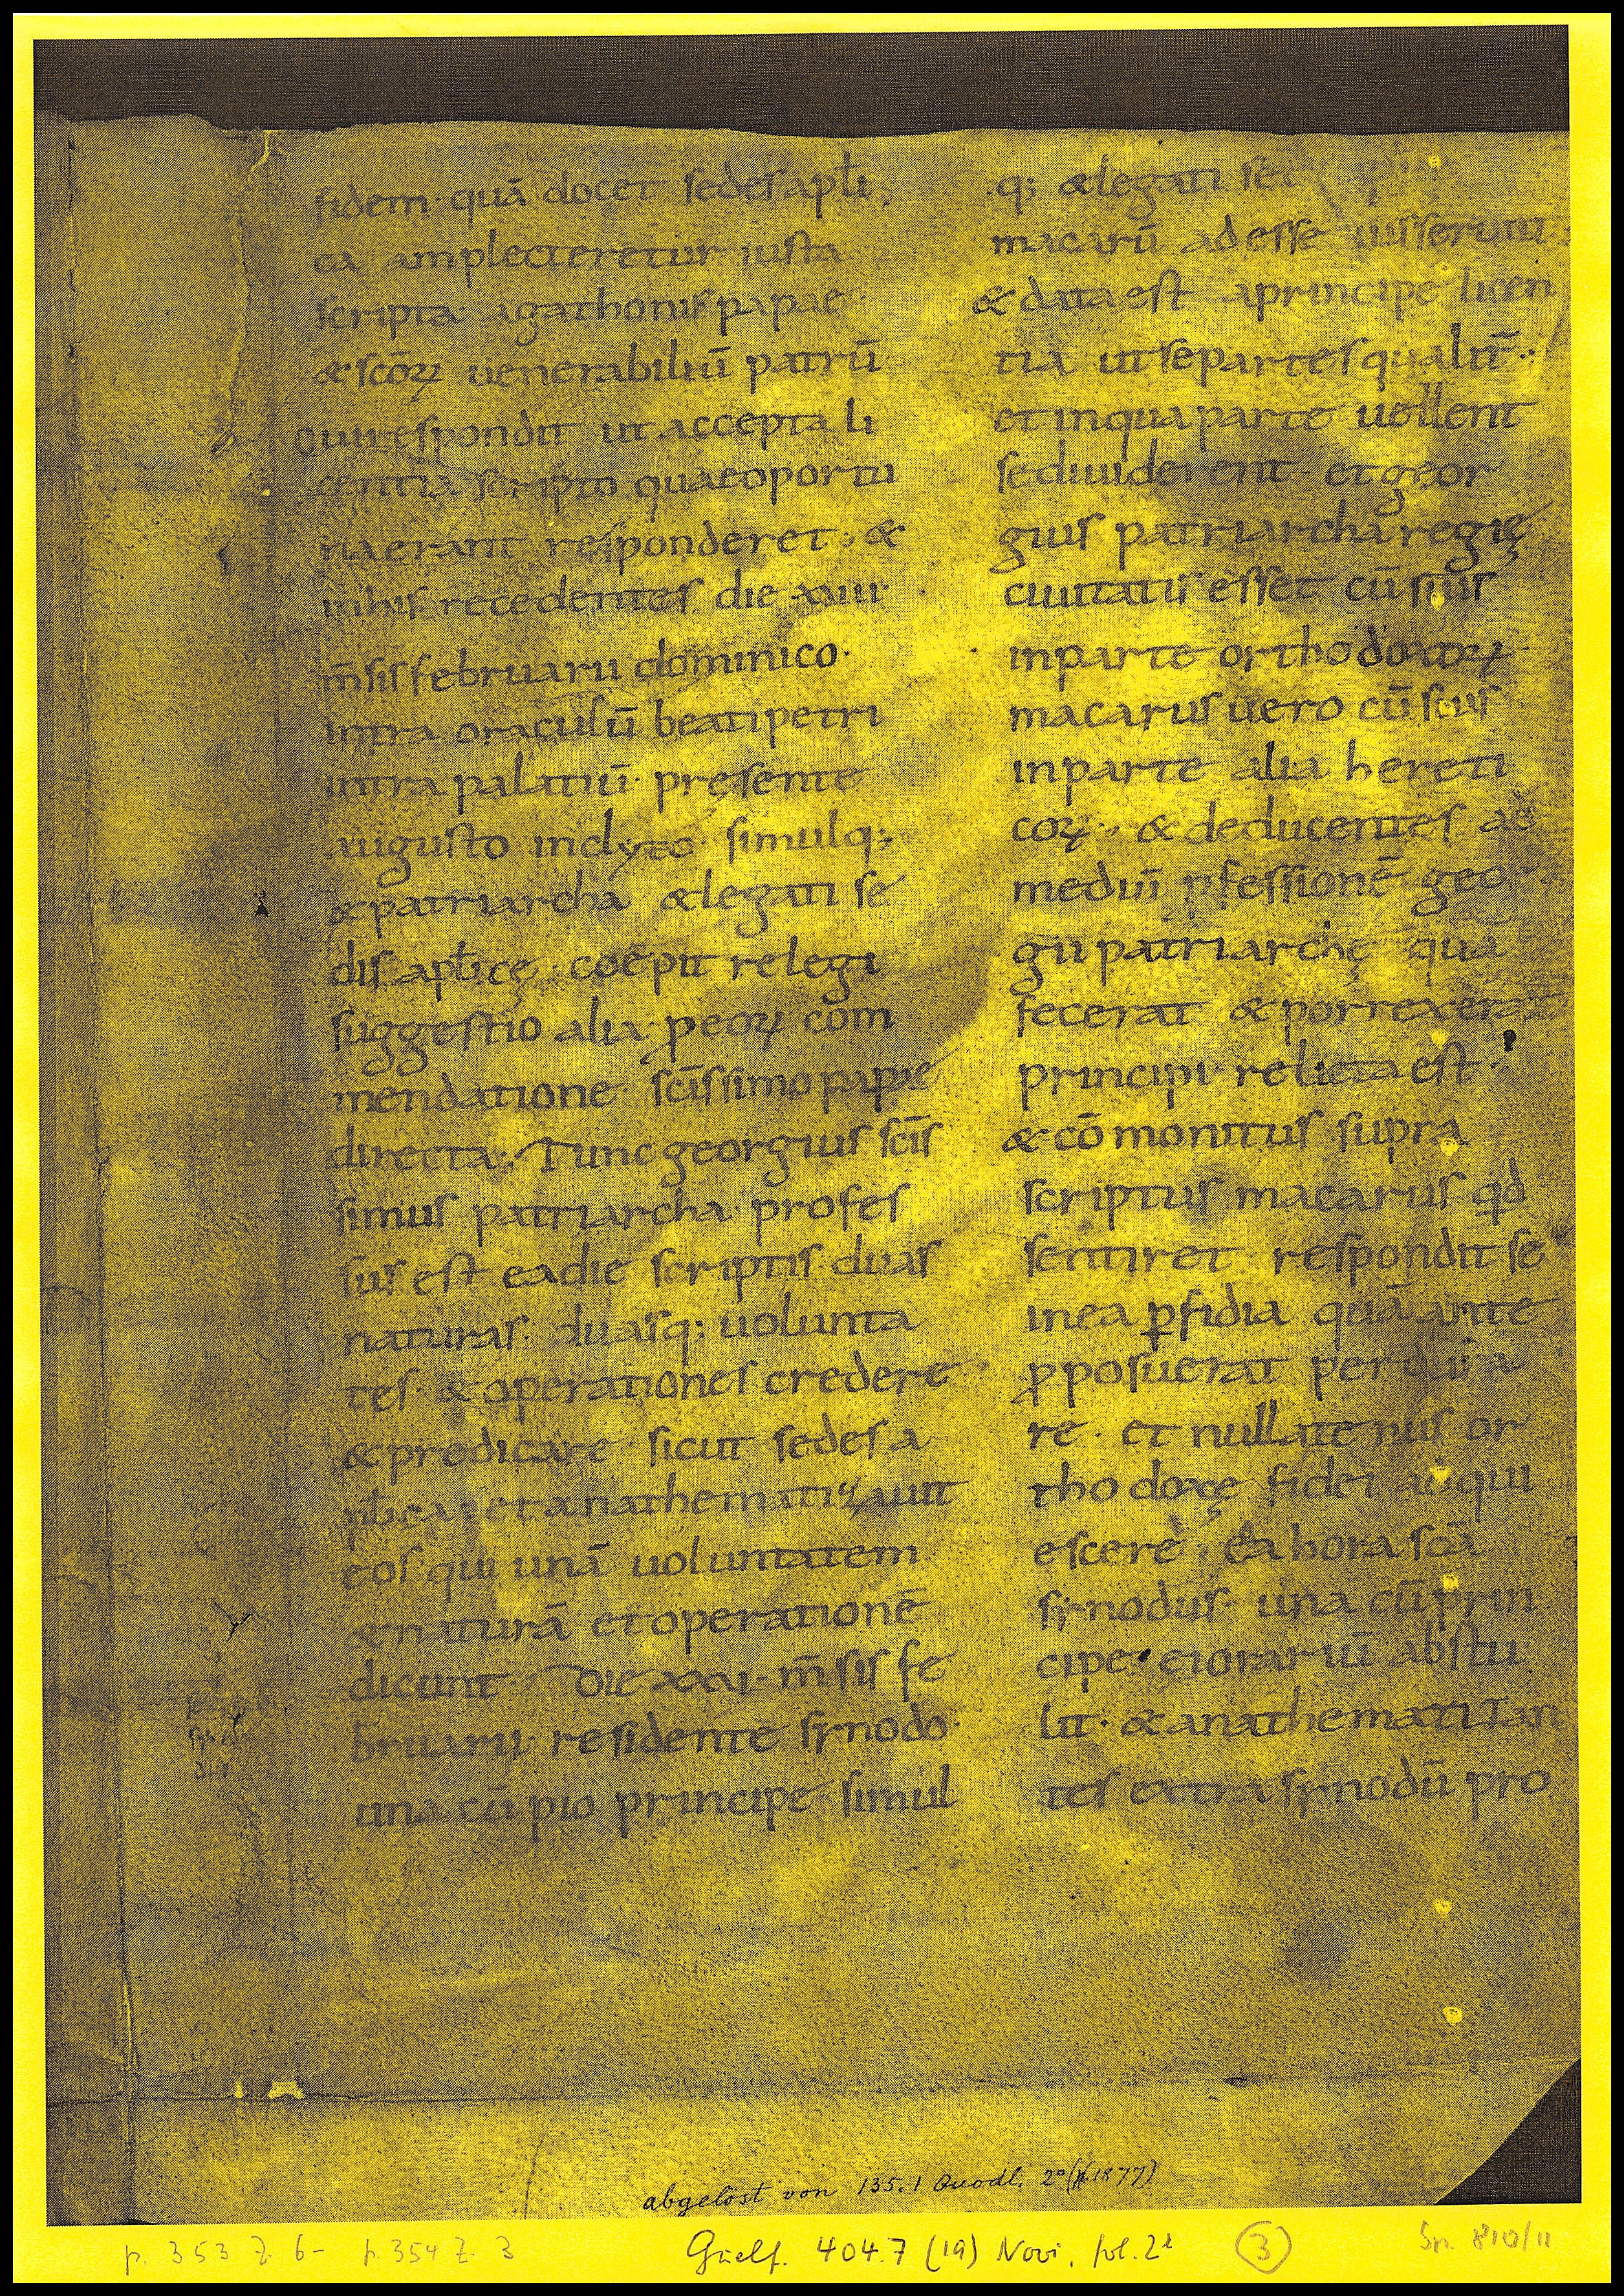 fidem quā docet sedes apƚi
ca amplecteretur iusta
scripta agathonis papae
& scōꝝ uenerabiliū patrū
Qui respondit ut accepta li
centia scripto quae oportu
na erant responderet · &
in his recedentes die xiiii
m̄sis februarii dominico·
intra oraculū beati petri
intra palatiū· pręsente
augusto inclyto simulq;
& patriarcha & legati se
dis apƚicę· coepit relegi
suggestio alia p eoꝝ com
mendatione sc̄issimo papae
directa; Tunc georgius sc̄is
simus patriarcha profes
sus est ea die scriptis duas
naturas· duasq; uolunta
tes· & operationes credere
& predicare sicut sedes a
pƚica· et anathematizauit
eos qui unā uoluntatem
& naturā et operationē
dicunt· Die xxvi· m̄sis fe
bruarii residente synodo·
una cū pio principe simul
q; & legati sed
macariū adesse iusserunt
& data est a principe licen
tia ut se partes qualit̄·
et in qua parte uellent
se diuiderent et geor
gius patriarcha regię
ciuitatis esset cū suis
in parte orthodoxoꝝ
macarius uero cū suis
in parte alia hereti
coꝝ· & deducentes ad
mediū ꝓfessionē geor
gii patriarchę quā
fecerat & porrexerat
principi relicta est·
& cōmonitus supra
scriptus macarius qd̄
sentiret respondit se
in ea ꝑfidia quā ante
ꝓposuerat perdura
re· et nullatenus or
thodoxę fidei adqui
escere; Ea hora scā
synodus· una cū prin
cipe· eius orariū abstu
lit· & anathematizan
tes extra synodū pro
abgelöst von 135.1 Quodl. 2° (1877)
p. 353 Z. 6 - p. 354 Z. 3
Guelf. 404.7 (19) Novi, fol. 2r
3
Sn. 810/11